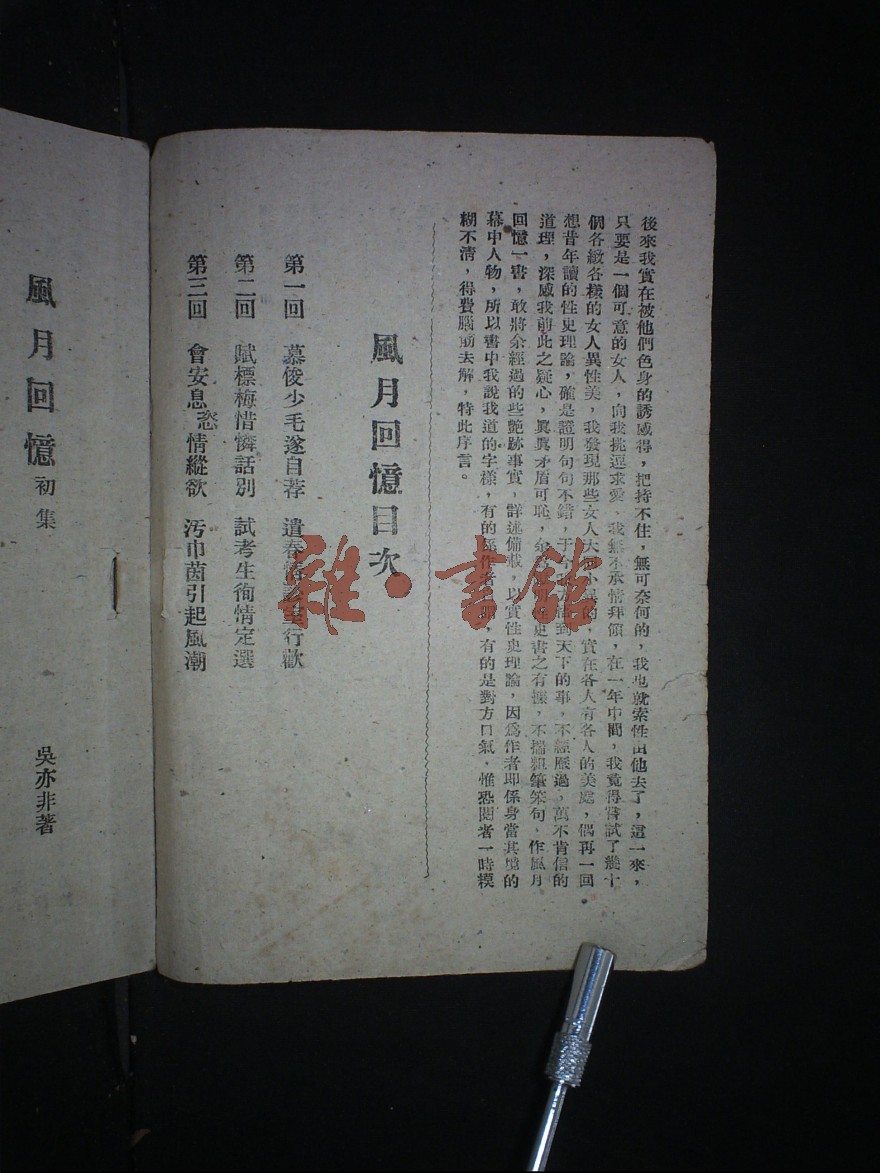 後來我實在被他們色身的誘感得，把持不住，無可奈何的，我也就索性由他去了，這一來，
只要是一個可意的女人，向我挑逗求愛，我無不承情拜領，在一年中間，我竟得嘗試了幾十
個各緻各樣的女人異性美，我發現那些女人大同小異的，實在各人有各人的美處，偶再一回
想昔年讀的性史理論，確是證明句句不錯，于今 到天下的事，不經歷過，萬不肯信的
道理，深感我前此之疑心，異異矛盾可恥，余 史書之有據，不揣粗筆笨句，作風月
回憶一書，敢將余經過的些艷跡事實，詳述備載，以實性史理論，因爲作者即係身當其境的
幕中人物，所以書中我說我道的字樣，有的係作者 ，有的是對方口氣，惟恐閱者一時模
糊不清，得費腦筋去解，特此序言。
風月回憶目次
第一回 慕俊少毛遂自荐 遣春情 行歡
第二回 賦標梅惜憐話別 試考生徇情定選
第三回 會安息恣情縱欲 汚巾茵引起風潮
風月回憶 初集
吳亦非著
雜·書館